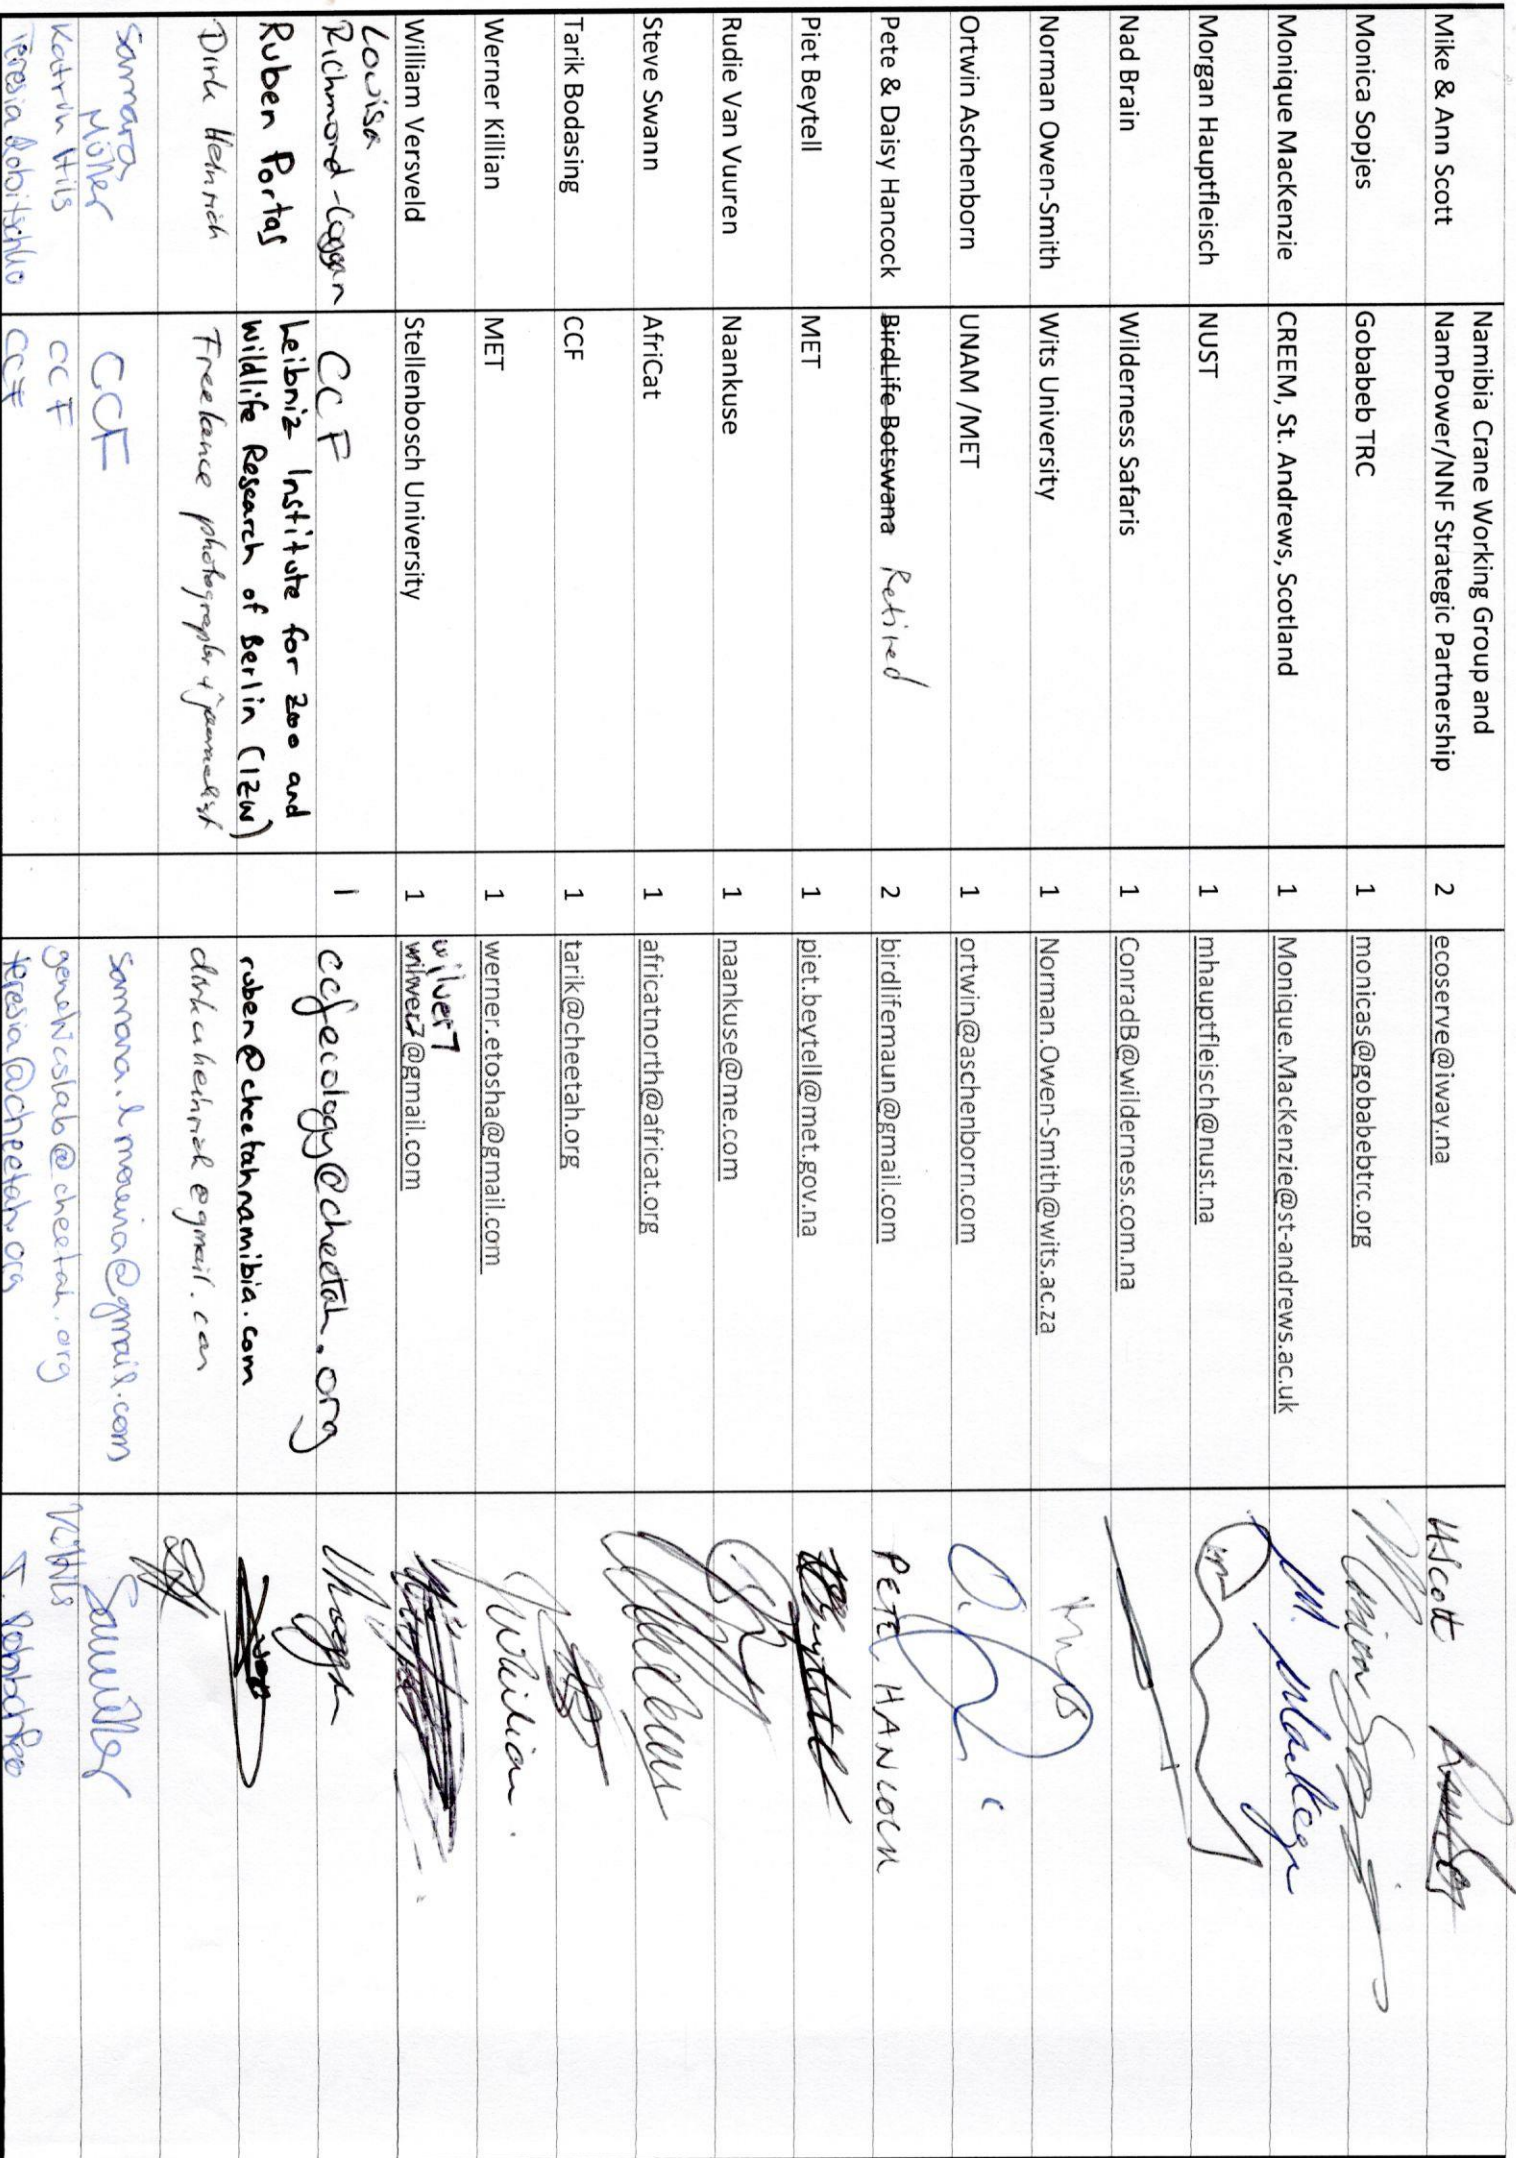 Namibia Crane Working Group and
Mike & Ann Scott NamPower/NNF Strategic Partnership 2 ecoserve@iway.na HScott
Monica Sopjes Gobabeb TRC 1 monicas@gobabebtrc.org
Monique MacKenzie CREEM, St. Andrews, Scotland 1 Monique.MacKenzie@st-andrews.ac.uk
Morgan Hauptfleisch NUST 1 mhauptfleisch@nust.na
Nad Brain Wilderness Safaris 1 ConradB@wilderness.com.na
Norman Owen-Smith Wits University 1 Norman.Owen-Smith@wits.ac.za
Ortwin Aschenborn UNAM /MET 1 ortwin@aschenborn.com
Pete & Daisy Hancock BirdLife Botswana Retired 2 birdlifemaun@gmail.com PETE HANCOCK
Piet Beytell MET 1 piet.beytell@met.gov.na
Rudie Van Vuuren Naankuse 1 naankuse@me.com
Steve Swann AfriCat 1 africatnorth@africat.org
Tarik Bodasing CCF 1 tarik@cheetah.org
Werner Killian MET 1 werner.etosha@gmail.com
wilver7
William Versveld Stellenbosch University 1 @gmail.com
Louisa
Richmond-Coggan CCF 1 ccfecology@cheetah.org
Ruben Portas Leibniz Institute for Zoo and
Wildlife Research of Berlin (IZW) ruben@cheetahnamibia.com
Dirk Heinrich Freelance photographer + journalist
Samara
Müller CCF
Katrin Hils CCF geneticslab@cheetah.org KHils
CCF teresia@cheetah.org